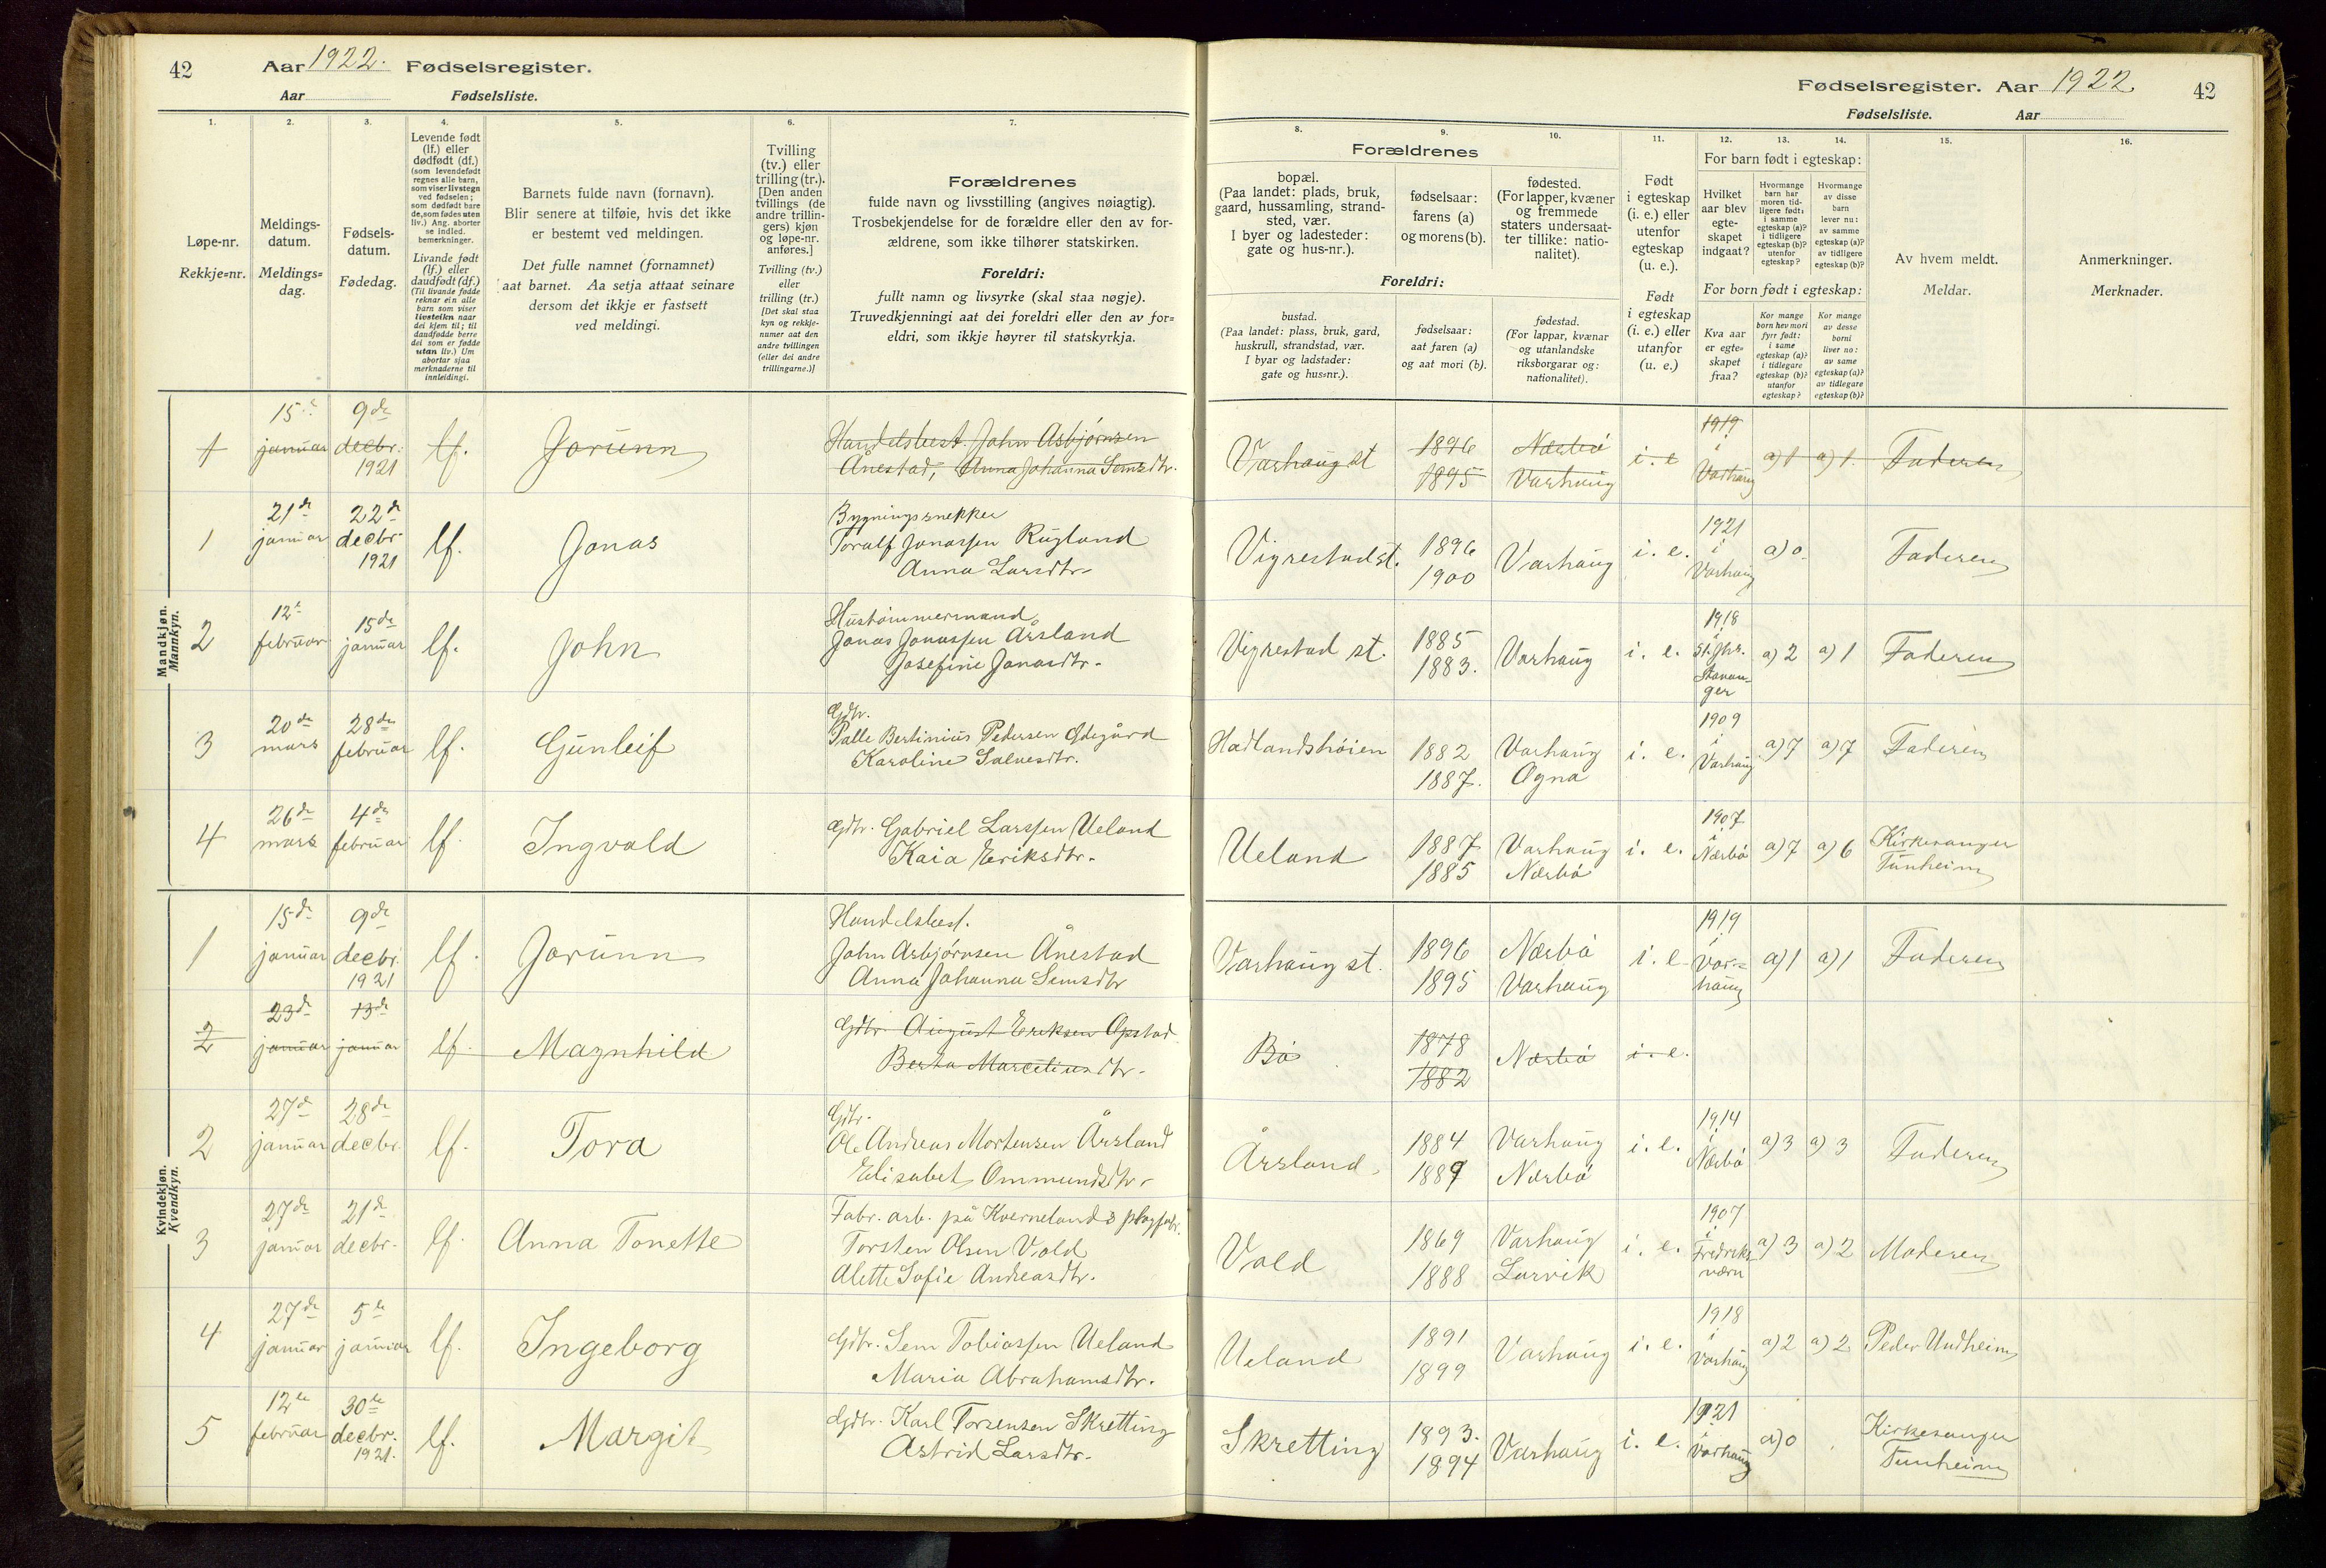 42 Aar 1922. Fødselsregister.
Aar Fødselsliste.
1. 2. 3. 4. 5. 6. 7.
Løpe-nr.
Rekkje=nr.
Meldings-
datum.
Meldings=
dag.
Fødsels-
datum.
Fødedag.
Levende født
(lf.) eller
dødfødt (df.)
(som levendefødt
regnes alle barn,
som viser livstegn
ved fødselen;
som dødfødt bare
de, som fødes uten
liv.) Ang. aborter
se indled.
bemerkninger.
Livande født
(lf.) eller
daudfødt (df.)
(Til livande fødde
reknar ein alle
barn som viser
livsteikn naar
dei kjem til; til
daudfødde berre
dei som er fødde
utan liv.) Um
abortar sjaa
merknaderne til
innleidingi.
Barnets fulde navn (fornavn).
Blir senere at tilføie, hvis det ikke
er bestemt ved meldingen.
Det fulle namnet (fornamnet)
aat barnet. Aa setja attaat seinare
dersom det ikkje er fastsett
ved meldingi.
Tvilling
(tv.) eller
trilling (tr.).
[Den anden
tvillings (de
andre trillin-
gers) kjøn
og løpe-nr.
anføres.]
Tvilling (tv.)
eller
trilling (tr.)
[Det skal staa
kyn og rekkje-
numer aat den
andre tvillingen
(eller dei andre
trillingarne.)]
Forældrenes
fulde navn og livsstilling (angives nøiagtig).
Trosbekjendelse for de forældre eller den av for-
ældrene, som ikke tilhører statskirken.
Foreldri:
fullt namn og livsyrke (skal staa nøgje).
Truvedkjenningi aat dei foreldri eller den av for=
eldri, som ikkje høyrer til statskyrkja.
Mandkjøn.
Mannkyn.
15de 9de
1 januar decbr. lf. Jorunn Handelsbest. John Asbjørnsen
1921 Ånestad, Anna Johanna Semsdtr.
21de 22de Bygningssnekker
1 januar decbr. lf. Jonas Toralf Jonassen Rugland
1921 Anna Larsdtr.
12te 15de Hustømmermand
2 februar januar lf. John Jonas Jonassen Årsland
Josefine Jonasdtr.
20de 28de Gdbr.
3 mars februar lf. Gunleif Palle Bertinius Pedersen Ødegård
Karoline Salvesdtr.
26de 4de
4 mars februar lf. Ingvald Gdbr. Gabriel Larssen Ueland
Kaia Eriksdtr.
Kvindekjøn.
Kvendkyn.
15de 9de Handelsbest.
1 januar decbr. lf. Jorunn John Asbjørnsen Ånestad
1921 Anna Johanna Semsdtr
23de 13de
2 januar januar lf. Magnhild Gdbr. August Eriksen Opstad
Berta Marcelius dtr.
27de 28de Gdbr.
2 januar decbr. lf. Tora Ole Andreas Mortensen Årsland
Elisabet Ommundsdtr.
27de 21de Fabr. arb. på Kvernelands plogfabr.
3 januar decbr. lf. Anna Tonette Torsten Olsen Vold
Alette Sofie Andreasdtr.
27de 5te
4 januar januar lf. Ingeborg Gdbr. Sem Tobiassen Ueland
Maria Abrahamsdtr.
12te 30te
5 februar decbr. lf. Margit Gdbr. Karl Torsensen Skretting
1921. Astrid Larsdtr.
Fødselsregister. Aar 1922. 42
Fødselsliste. Aar
8. 9. 10. 11. 12. 13. 14. 15. 16.
Forældrenes
bopæl.
(Paa landet: plads, bruk,
gaard, hussamling, strand-
sted, vær.
I byer og ladesteder:
gate og hus-nr.).
fødselsaar:
farens (a)
og morens (b).
fødested.
(For lapper, kvæner
og fremmede
staters undersaat-
ter tillike: natio-
nalitet).
Foreldri:
bustad.
(Paa landet: plass, bruk, gard,
huskrull, strandstad, vær.
I byar og ladstader:
gate og hus=nr.).
fødselsaar:
aat faren (a)
og aat mori (b).
fødestad.
(For lappar, kvænar
og utanlandske
riksborgarar og:
nationalitet).
Født
i egteskap
(i. e.) eller
utenfor
egteskap
(u. e.).
Født
i egteskap
(i. e.) eller
utanfor
(u. e.)
For barn født i egteskap:
Hvilket
aar blev
egte-
skapet
indgaat?
Hvormange
barn har
moren tid-
ligere født:
i samme
egteskap (a)?
i tidligere
egteskap (b)?
utenfor
egteskap?
Hvormange
av disse
barn
lever nu:
av samme
egteskap (a)?
av tidligere
egteskap (b)?
For born født i egteskap:
Kva aar
er egte-
skapet
fraa?
Kor mange
born hev mori
fyrr født:
i same
egteskap (a)?
i tidlegare
egteskap (b)?
utanfor
egteskap?
Kor mange
av desse
borni
liver no:
av same
egteskap (a)?
av tidlegare
egteskap (b)?
Av hvem meldt.
Meldar.
Anmerkninger.
Merknader.
Varhaug st 1896 Nærbø i. e 1919 i Varhaug a) 1 a) 1. Faderen
1895 Varhaug
Vigrestad st. 1896 Varhaug i. e. 1921 i Varhaug a) 0. Faderen
1900
Vigrestad st. 1885 Varhaug i. e. 1918 i St. Joh. Stavan-
ger a) 2 a) 1 Faderen
1883.
Hadlandshøien 1882 Varhaug i. e. 1909 i Varhaug a) 7 a) 7 Faderen
1887. Ogna
Ueland 1887 Varhaug i. e. 1907 i Nærbø a) 7 a) 6 Kirkesanger
1885 Nærbø Tunheim
Varhaug st. 1896 Nærbø i. e 1919 i Var-
haug a) 1 a) 1 Faderen
1895 Varhaug
Bø 1878 Nærbø i. e.
1882
Årsland 1884 Varhaug i. e. 1914 i Nærbø a) 3 a) 3 Faderen
1889 Nærbø
Vold 1869 Varhaug i. e. 1907 i Fredriks-
værn a) 3 a) 2 Moderen
1888 Larvik
Ueland 1891 Varhaug i. e. 1918 i Varhaug a) 2 a) 2 Peder Undheim
1899
Skretting 1893. Varhaug i. e. 1921 i Varhaug a) 0 Kirkesanger
1894 Tunheim